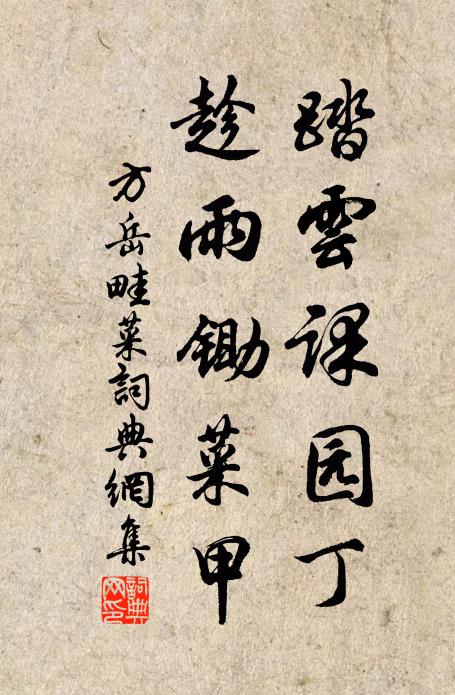 踏雲課园丁
趁雨鋤菜甲
方岳畦菜詞典網集
詞典网印